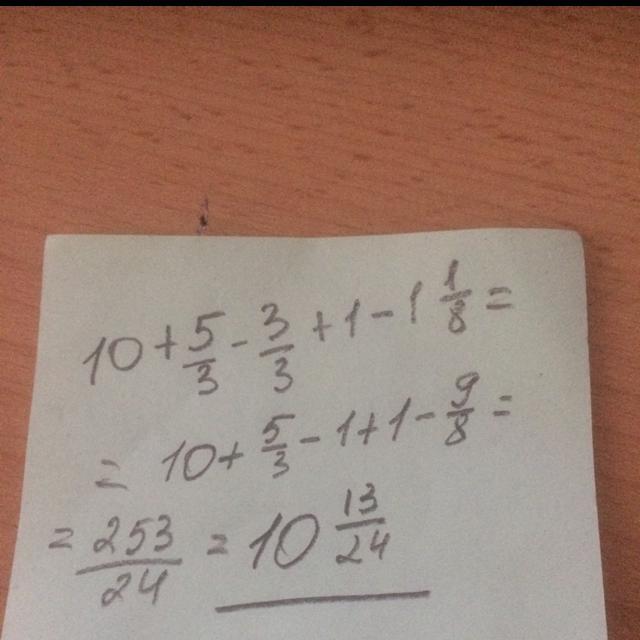 10 + 5/3 - 3/3 + 1 - 1 1/8 =
= 10 + 5/3 - 1 + 1 - 9/8 =
= 253/24 = 10 13/24